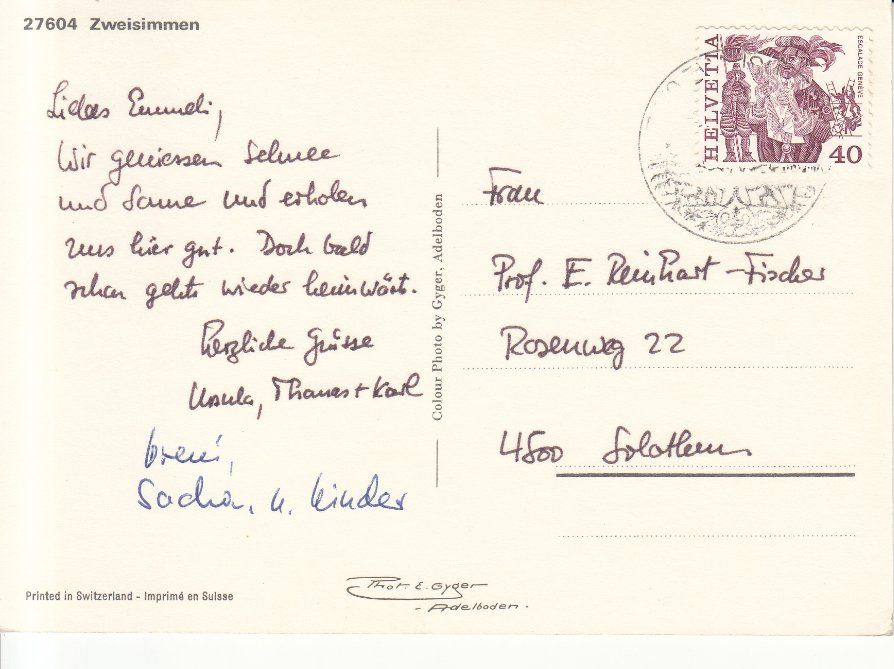 27604 Zweisimmen
Liebes Emmeli,
Wir geniessen Schnee
und Sonne und erholen
uns hier gut. Doch bald
schon gehts wieder heimwärts.
Herzliche Grüsse
Ursula, Thomas + Karl
Vreni,
Sacha, u. Kinder
Printed in Switzerland - Imprimé en Suisse
Colour Photo by Gyger, Adelboden
Phot. E. Gyger
- Adelboden.
HELVETIA
ESCALADE GENÈVE
40
Frau
Prof. E. Reinhart-Fischer
Rosenweg 22
4500 Solothurn